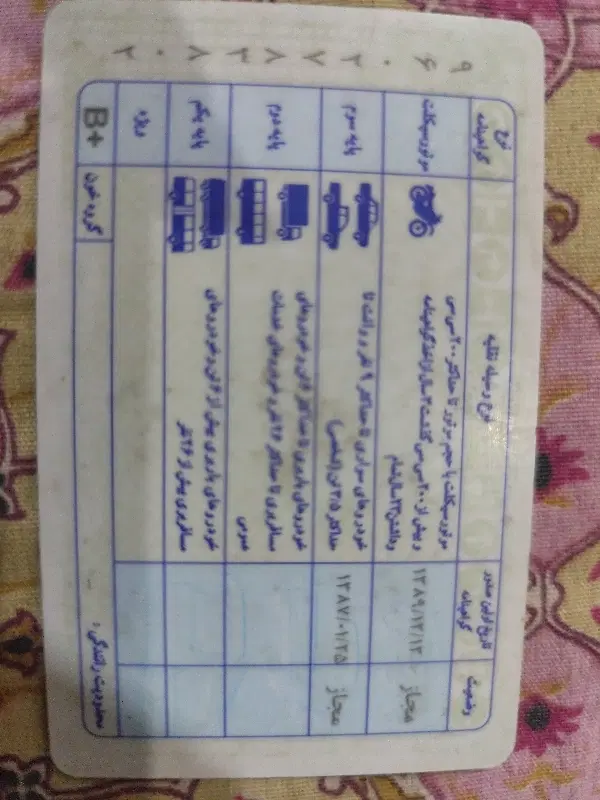 نوع گواهینامه
نوع وسیله نقلیه
تاریخ اولین صدور گواهینامه
وضعیت
موتورسیکلت
موتورسیکلت با حجم موتور تا حداکثر ۲۰۰ سی سی
و بیش از ۲۰۰ سی سی گذشت ۲ سال از اخذ گواهینامه
و داشتن ۲۳ سال تمام
۱۳۸۹/۱۲/۱۲
مجاز
پایه سوم
خودروهای سواری تا حداکثر ۹ نفر و وانت تا
حداکثر ۳/۵ تن (شخصی)
۱۳۸۷/۰۱/۲۵
مجاز
پایه دوم
خودروهای باربری تا حداکثر ۶ تن و خودروهای
مسافربری تا حداکثر ۲۶ نفر و خودروهای خدمات
عمومی
پایه یکم
خودروهای باربری بیش از ۶ تن و خودروهای
مسافربری بیش از ۲۶ نفر
ویژه
گروه خون
B+
محدودیت رانندگی :